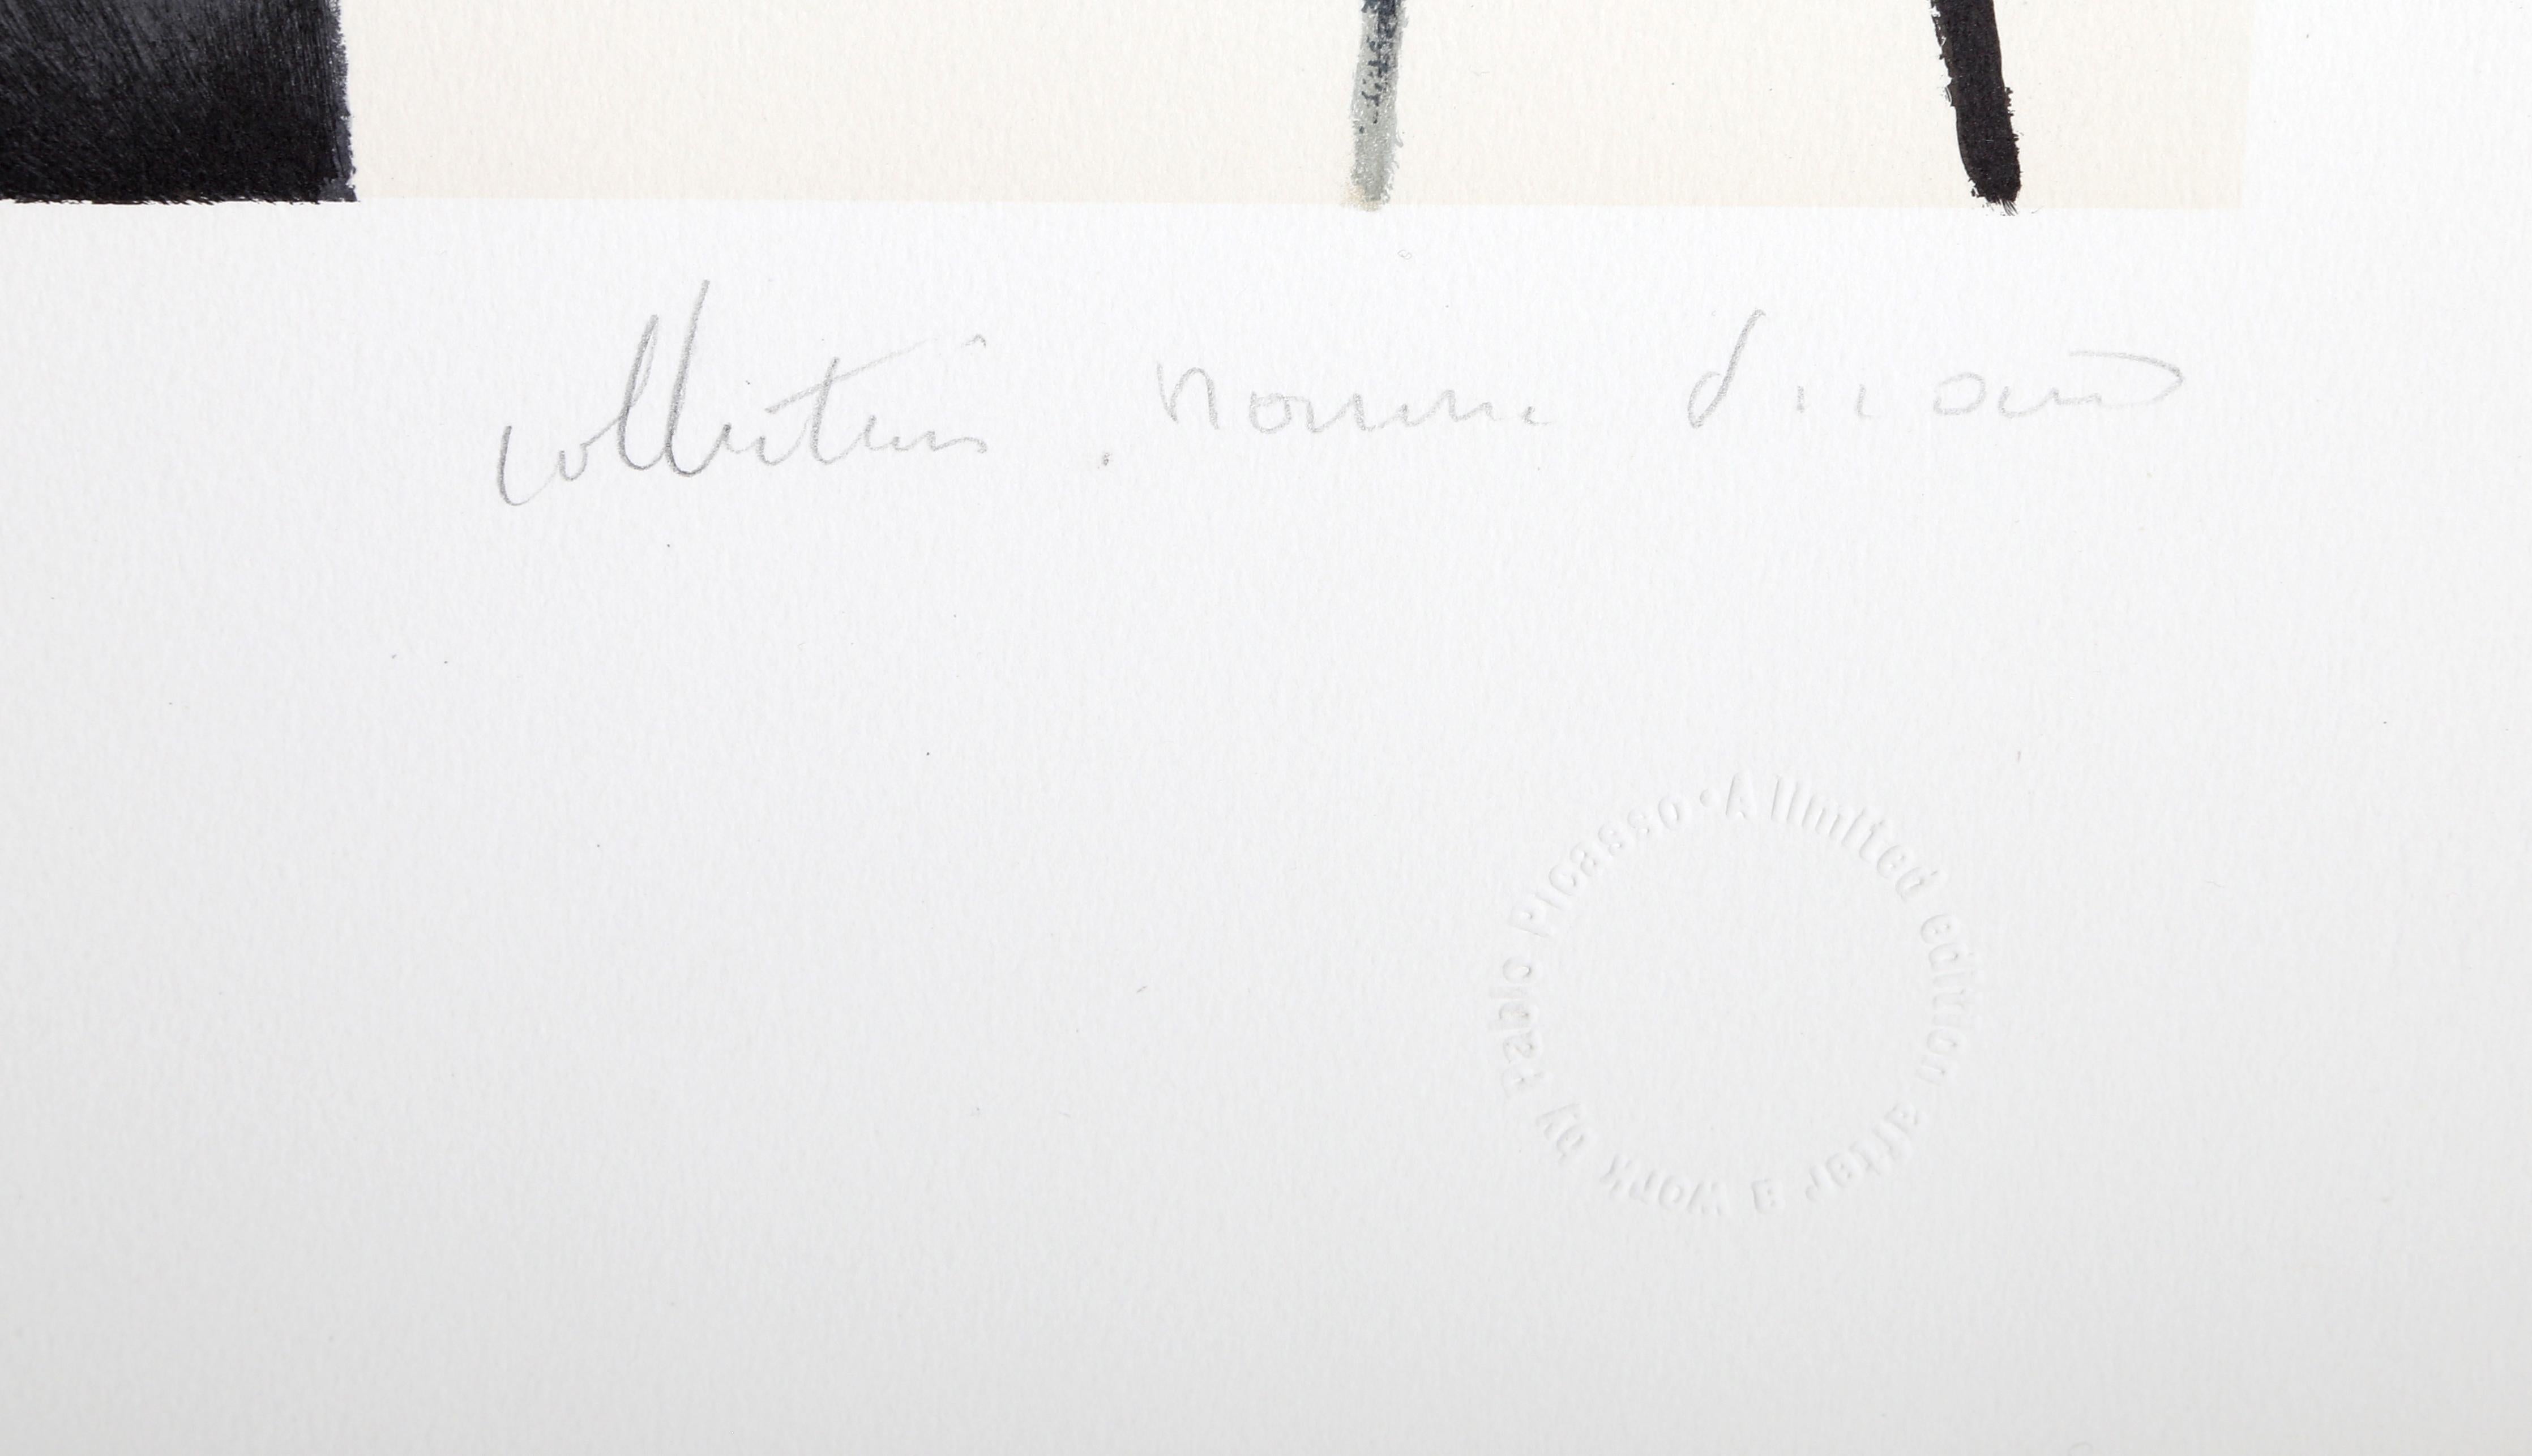 Collection Marina Picasso
A limited edition after a work by Pablo Picasso •